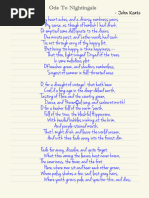 Ode To Nightingale
- John Keats
My heart aches, and a drowsy numbness pains
My sense, as though of hemlock I had drunk,
Or emptied some dull opiate to the drains
One minute past, and Lethe-wards had sunk:
'Tis not through envy of thy happy lot,
But being too happy in thine happiness,
That thou, light-winged Dryad of the trees
In some melodious plot
Of beechen green, and shadows numberless,
Singest of summer in full-throated ease.
O, for a draught of vintage! that hath been
Cool'd a long age in the deep-delved earth,
Tasting of Flora and the country green,
Dance, and song, and sunburnt mirth!
O for a beaker full of the warm South,
Full of the true, the blushful Hippocrene,
With beaded bubbles winking at the brim,
And purple-stained mouth;
That I might drink, and leave the world unseen,
And with thee fade away into the forest dim:
Fade far away, dissolve, and quite forget
What thou among the leaves hast never known,
The weariness, the fever, and the fret
Here, where men sit and hear each other groan;
Where palsy shakes a few, sad, last gray hairs,
Where youth grows pale, and spectre-thin, and dies;